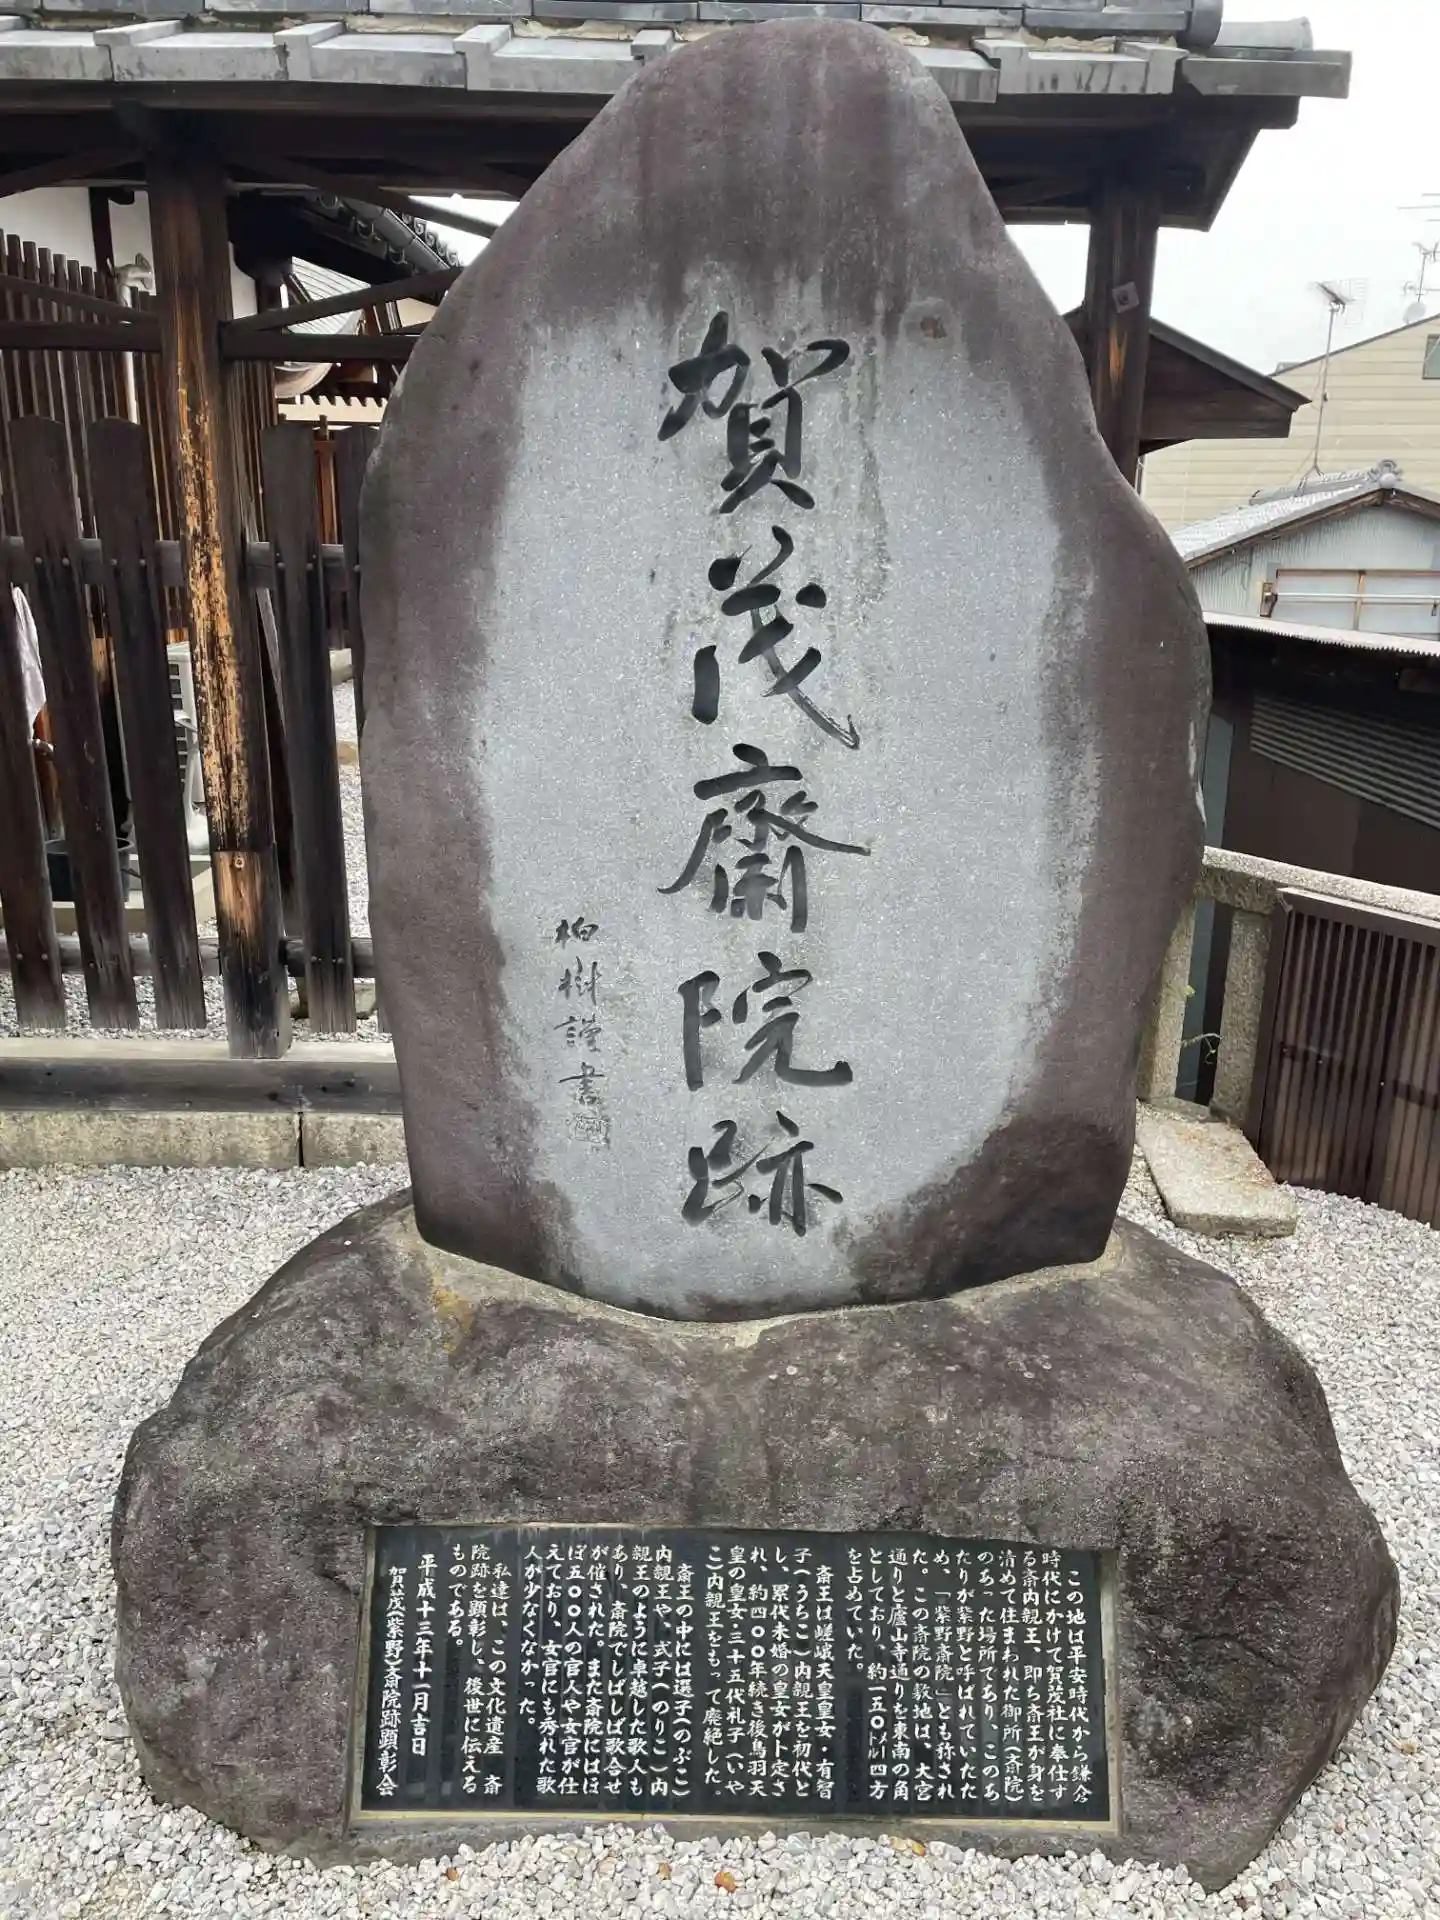 賀茂齋院跡
柏樹謹書
この地は平安時代から鎌倉
時代にかけて賀茂社に奉仕す
る斎内親王、即ち斎王が身を
清めて住まわれた御所(斎院)
のあった場所であり、このあ
たりが紫野と呼ばれていたた
め、「紫野斎院」とも称され
た。この斎院の敷地は、大宮
通りと廬山寺通りを東南の角
としており、約一五〇㍍四方
を占めていた。
斎王は嵯峨天皇皇女・有智
子(うちこ)内親王を初代と
し、累代未婚の皇女が卜定さ
れ、約四〇〇年続き後鳥羽天
皇の皇女・三十五代礼子(いや
こ)内親王をもって廃絶した。
斎王の中には選子(のぶこ)
内親王や、式子(のりこ)内
親王のように卓越した歌人も
あり、斎院でしばしば歌合せ
が催された。また斎院にはほ
ぼ五〇〇人の官人や女官が仕
えており、女官にも秀れた歌
人が少なくなかった。
私達は、この文化遺産 斎
院跡を顕彰し、後世に伝える
ものである。
平成十三年十一月吉日
賀茂(紫野)斎院跡顕彰会